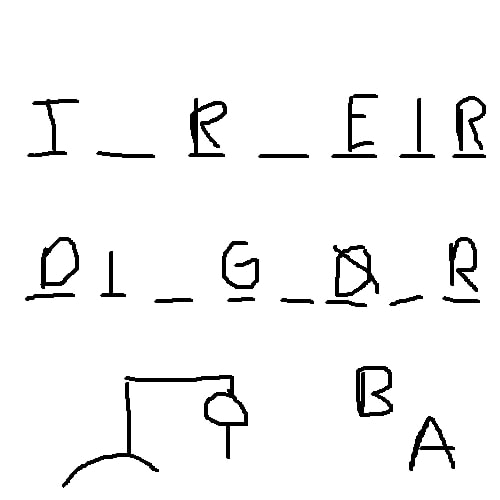 I _ R _ E I R
D I _ G _ D _ R
B
A